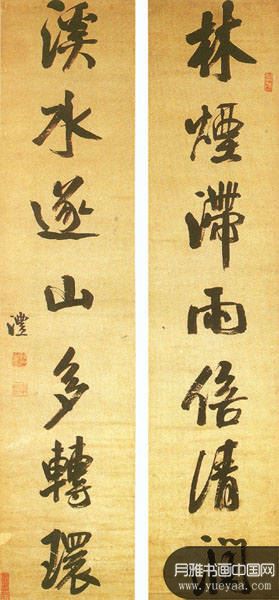 林煙滯雨倍清
溪水遂山多轉環
澧
月雅书画中国网
www.yueyaa.com